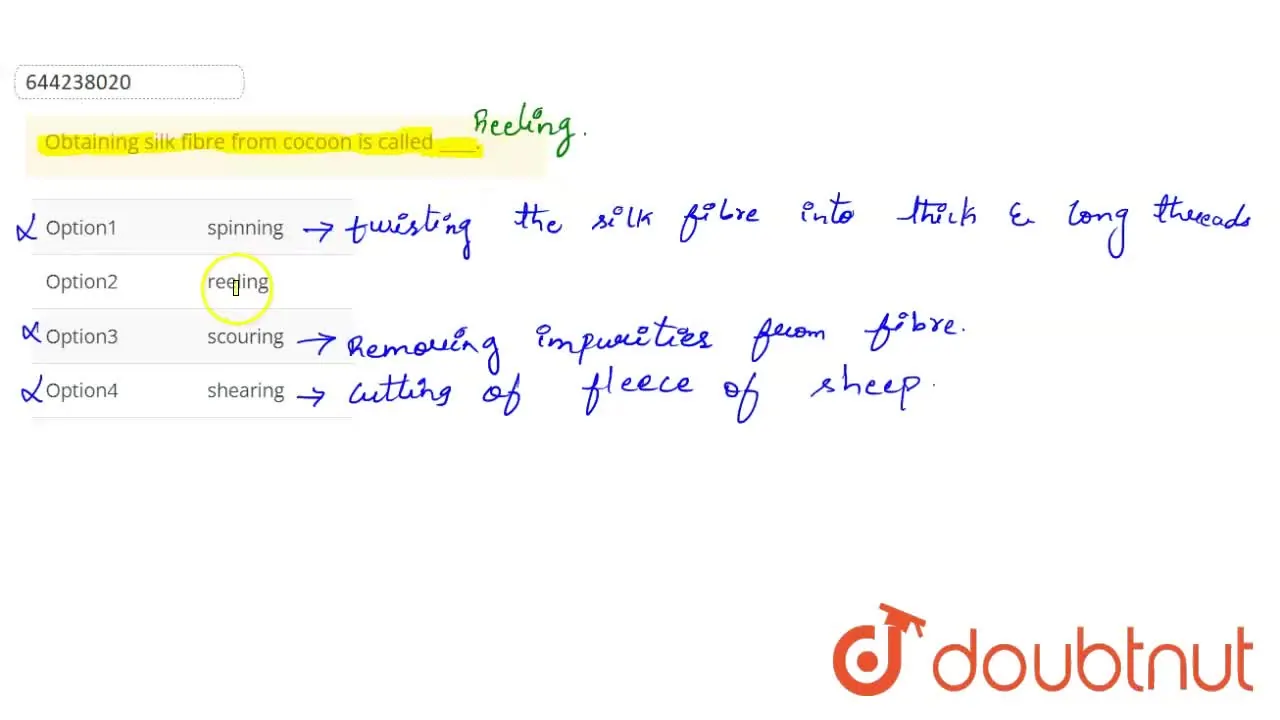 644238020
Reeling.
Obtaining silk fibre from cocoon is called ____.
Option1 spinning → twisting the silk fibre into thick & long threads
Option2 reeling
Option3 scouring → Removing impurities from fibre.
Option4 shearing → cutting of fleece of sheep.
doubtnut